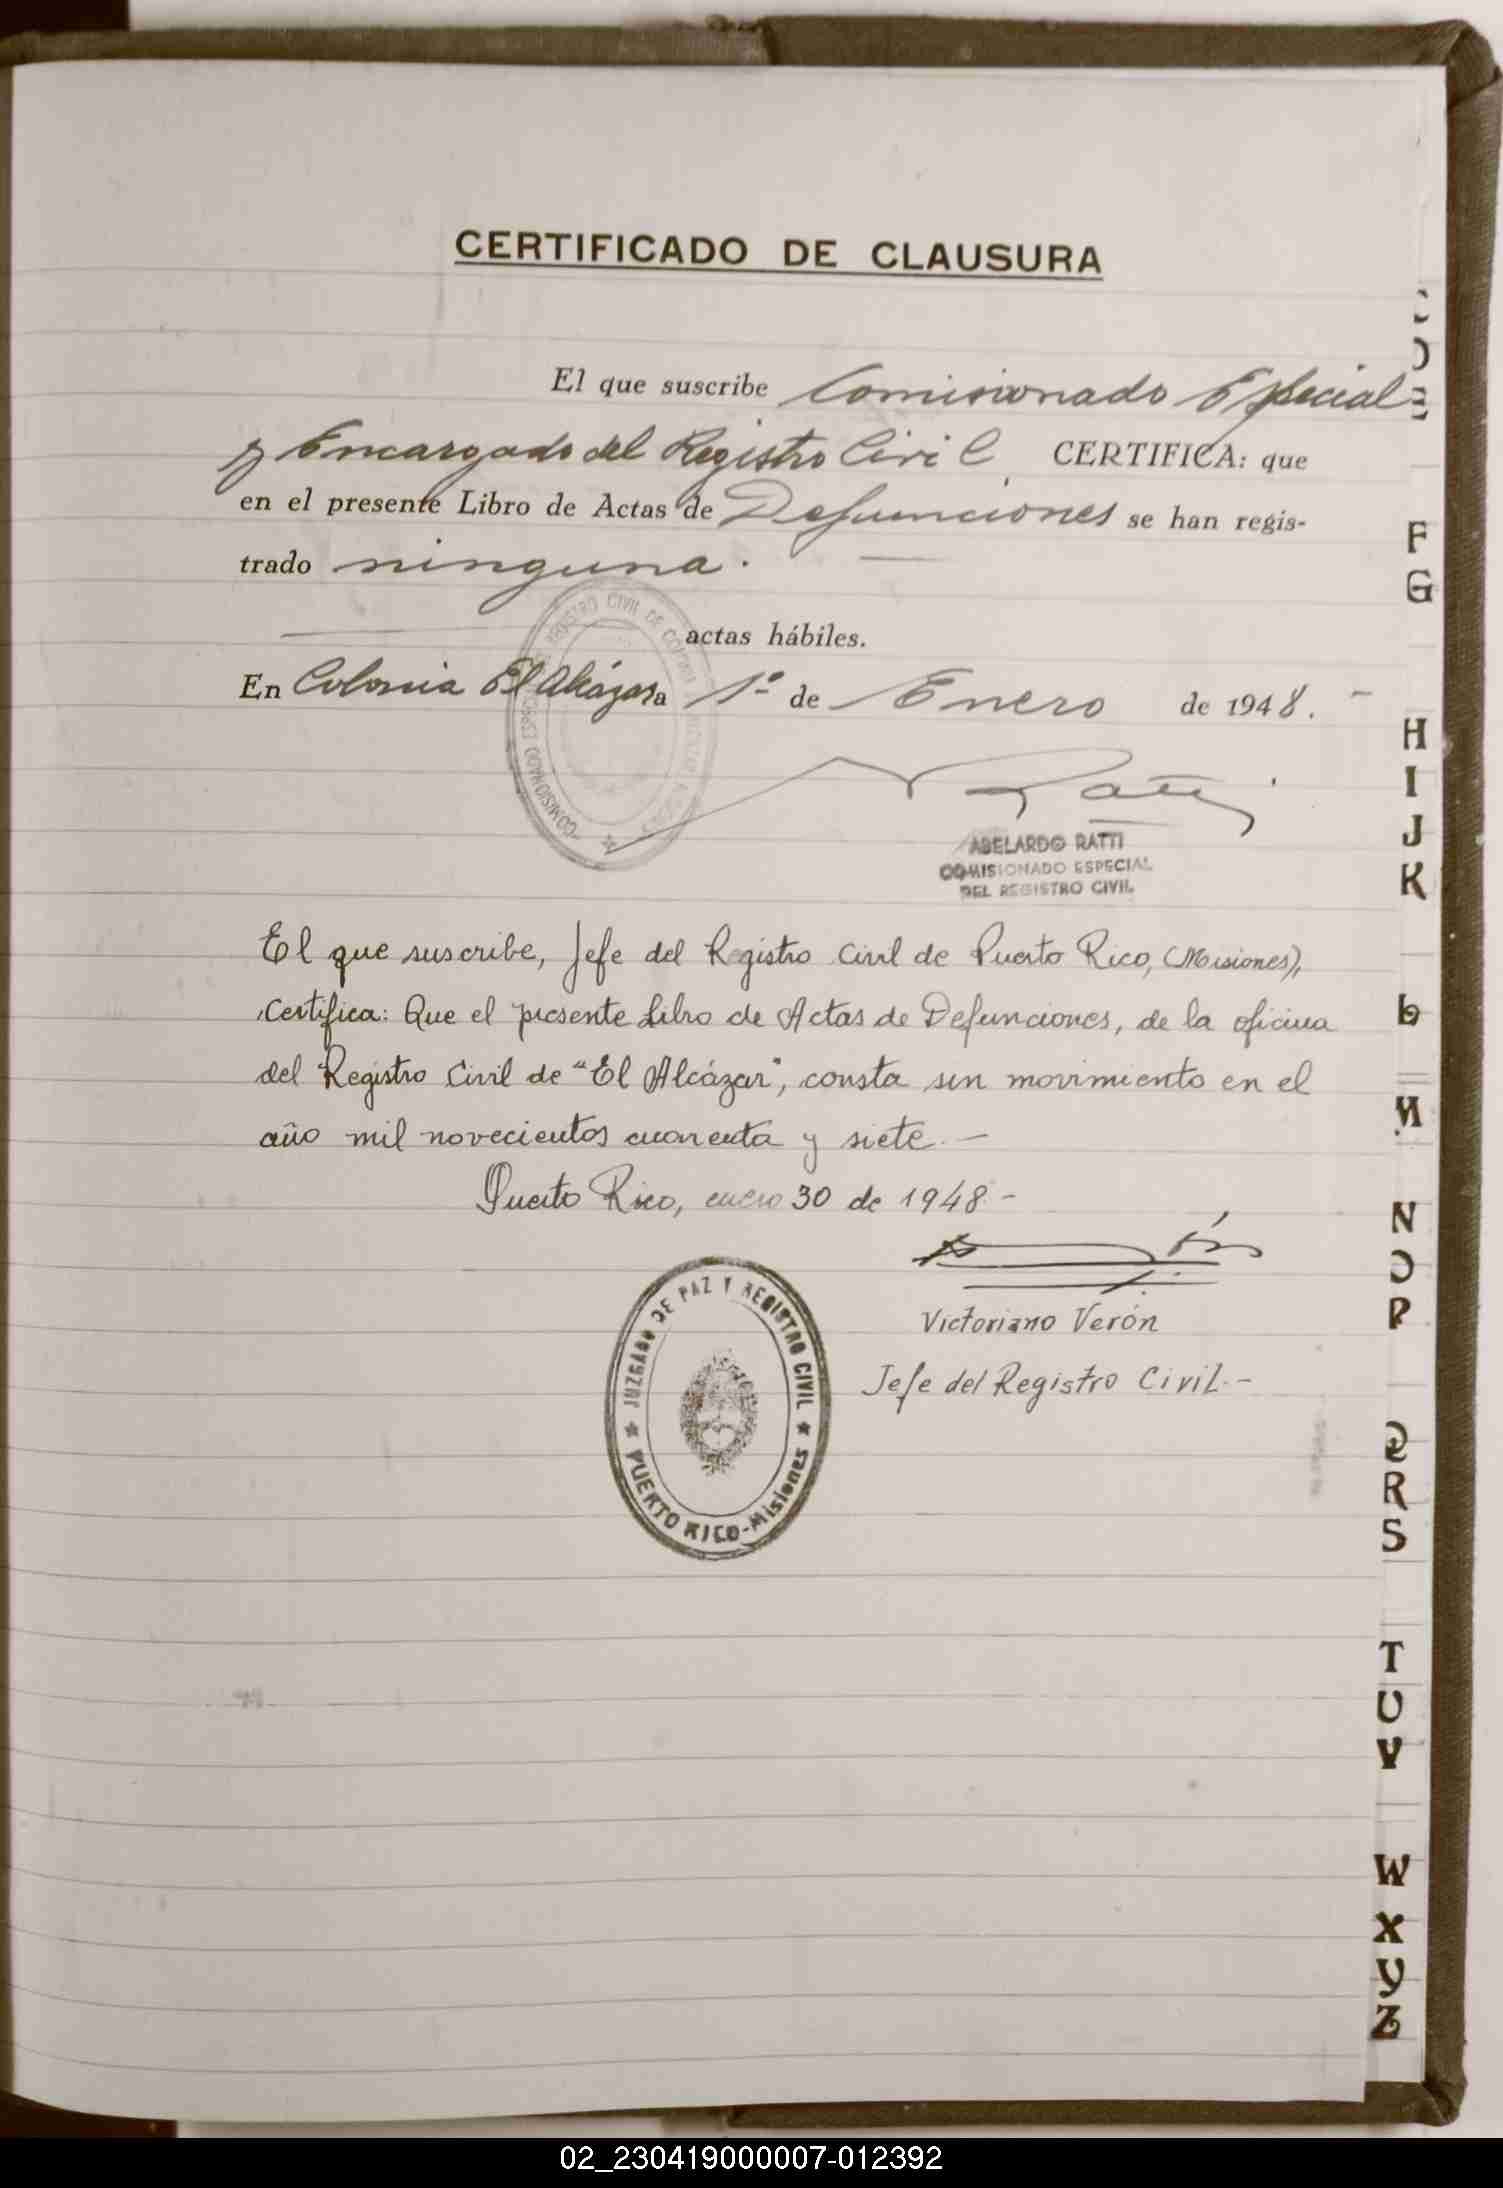 CERTIFICADO DE CLAUSURA
El que suscribe Comisionado Especial
y Encargado del Registro Civil CERTIFICA: que
en el presente Libro de Actas de Defunciones se han regis-
trado ninguna.
actas hábiles.
En Colonia El Alcázar a 1º de Enero de 1948.
Ratti
ABELARDO RATTI
COMISIONADO ESPECIAL
DEL REGISTRO CIVIL
El que suscribe, Jefe del Registro Civil de Puerto Rico, (Misiones),
Certifica: Que el presente Libro de Actas de Defunciones, de la oficina
del Registro Civil de "El Alcázar", consta sin movimiento en el
año mil novecientos cuarenta y siete.—
Puerto Rico, enero 30 de 1948-
Victoriano Verón
Jefe del Registro Civil.-
JUZGADO DE PAZ Y REGISTRO CIVIL
PUERTO RICO-Misiones
COMISIONADO ESPECIAL REGISTRO CIVIL DE
F
G
H
I
J
K
L
M
N
O
P
Q
R
S
T
U
V
W
X
Y
Z
02_230419000007-012392